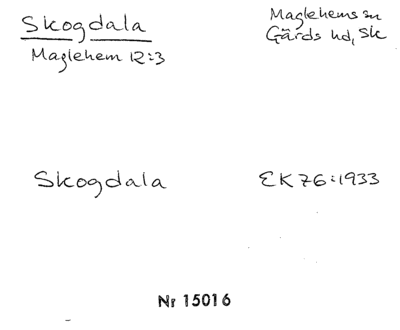 Skogdala
Maglehem 12:3
Maglehems sn
Gärds hd, Sk
Skogdala EK 76:1933
Nr 15016